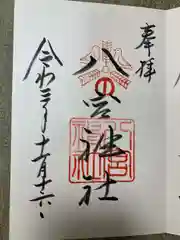 奉拝
八宮神社
令和三年十一月十六